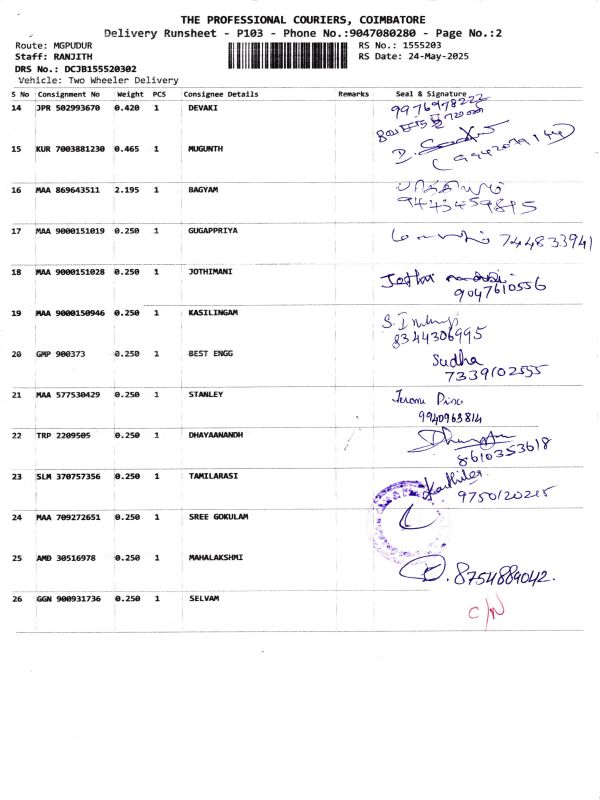 THE PROFESSIONAL COURIERS, COIMBATORE
Delivery Runsheet - P103 - Phone No.:9047080280 - Page No.:2
Route: MGPUDUR RS No.: 1555203
Staff: RANJITH RS Date: 24-May-2025
DRS No.: DCJB155520302
Vehicle: Two Wheeler Delivery
S No Consignment No Weight PCS Consignee Details Remarks Seal & Signature
14 JPR 502993670 0.420 1 DEVAKI 9976978222
15 KUR 7003881230 0.465 1 MUGUNTH
16 MAA 869643511 2.195 1 BAGYAM
9443459895
17 MAA 9000151019 0.250 1 GUGAPPRIYA 7448833941
18 MAA 9000151028 0.250 1 JOTHIMANI
9047610556
19 MAA 9000150946 0.250 1 KASILINGAM
8344306995
20 GMP 900373 0.250 1 BEST ENGG Sudha
7339102555
21 MAA 577530429 0.250 1 STANLEY
9940963814
22 TRP 2209505 0.250 1 DHAYAANANDH
8610353618
23 SLM 370757356 0.250 1 TAMILARASI
9750120215
24 MAA 709272651 0.250 1 SREE GOKULAM
25 AMD 30516978 0.250 1 MAHALAKSHMI
8754889042.
26 GGN 900931736 0.250 1 SELVAM C/N